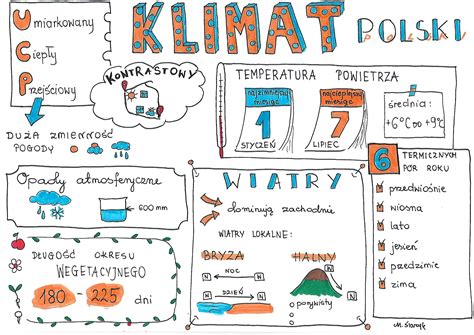 KLIMAT POLSKI
Umiarkowany
Ciepły
Przejściowy
KONTRASTOWY
DUŻA ZMIENNOŚĆ
POGODY
TEMPERATURA POWIETRZA
najzimniejszy
miesiąc
1
STYCZEŃ
najcieplejszy
miesiąc
7
LIPIEC
średnia:
+6°C do +9°C
Opady atmosferyczne
600 mm
DŁUGOŚĆ OKRESU
WEGETACYJNEGO
180 - 225 dni
WIATRY
dominują zachodnie
WIATRY LOKALNE:
BRYZA
NOC
N N
DZIEŃ
N
HALNY
N N
porywisty
6 TERMICZNYCH
PÓR ROKU
przedwiośnie
wiosna
lato
jesień
przedzimie
zima